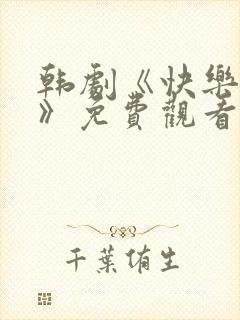 韩劇《快樂
》免費觀看
千葉侑生